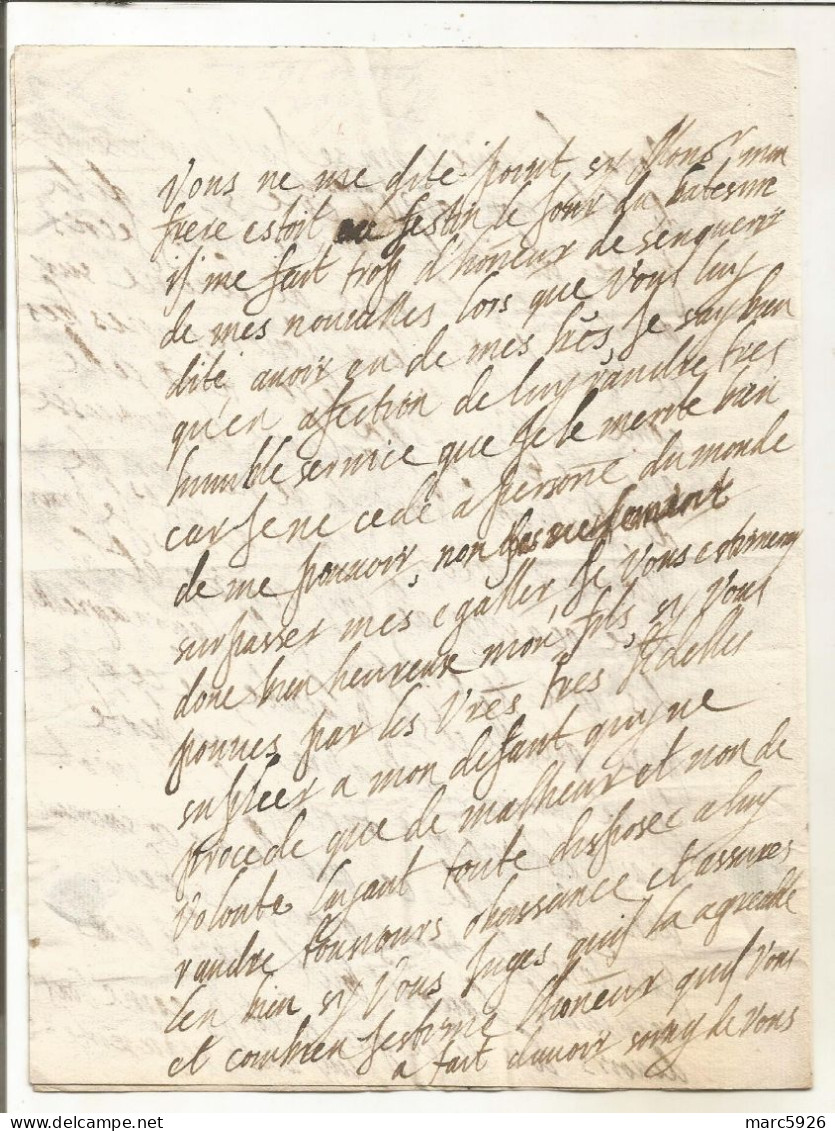 Vous ne me dite point sy Monsr mon
frere estoit au festin le jour du batesme
il me fait trop d'honeur de senquerir
de mes nouvelles lors que Vous luy
dite avoir eu de mes lres, Je say bien
qu'en afection de luy randre tres
humble service que je le merite bien
car je ne cede a persone du monde
de me pouvoir, non pas seulement
surpasser mes egaller Je Vous estimeray
donc bien heureux mon fils sy Vous
pouves par les Vres tres fidelles
supleer a mon defaut quy ne
procede que de malheur et non de
Volonte layant toute disposee a luy
randre tousiours obeissance et assures
len bien sy Vous juges quil la agreable
et combien jestime l'honeur quil Vous
a fait davoir soing de Vous
marc5926